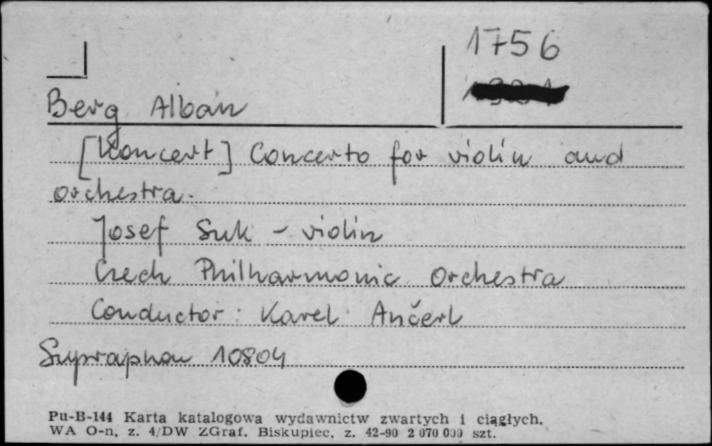 1756
Berg Alban
[Koncert] Concerto for violin and
orchestra.
Josef Suk - violin
Czech Philharmonic Orchestra
Conductor: Karel Ančerl
Supraphon 10804
Pu-B-144 Karta katalogowa wydawnictw zwartych i ciągłych.
WA O-n, z. 4/DW ZGraf. Biskupiec, z. 42-90 2 070 000 szt.